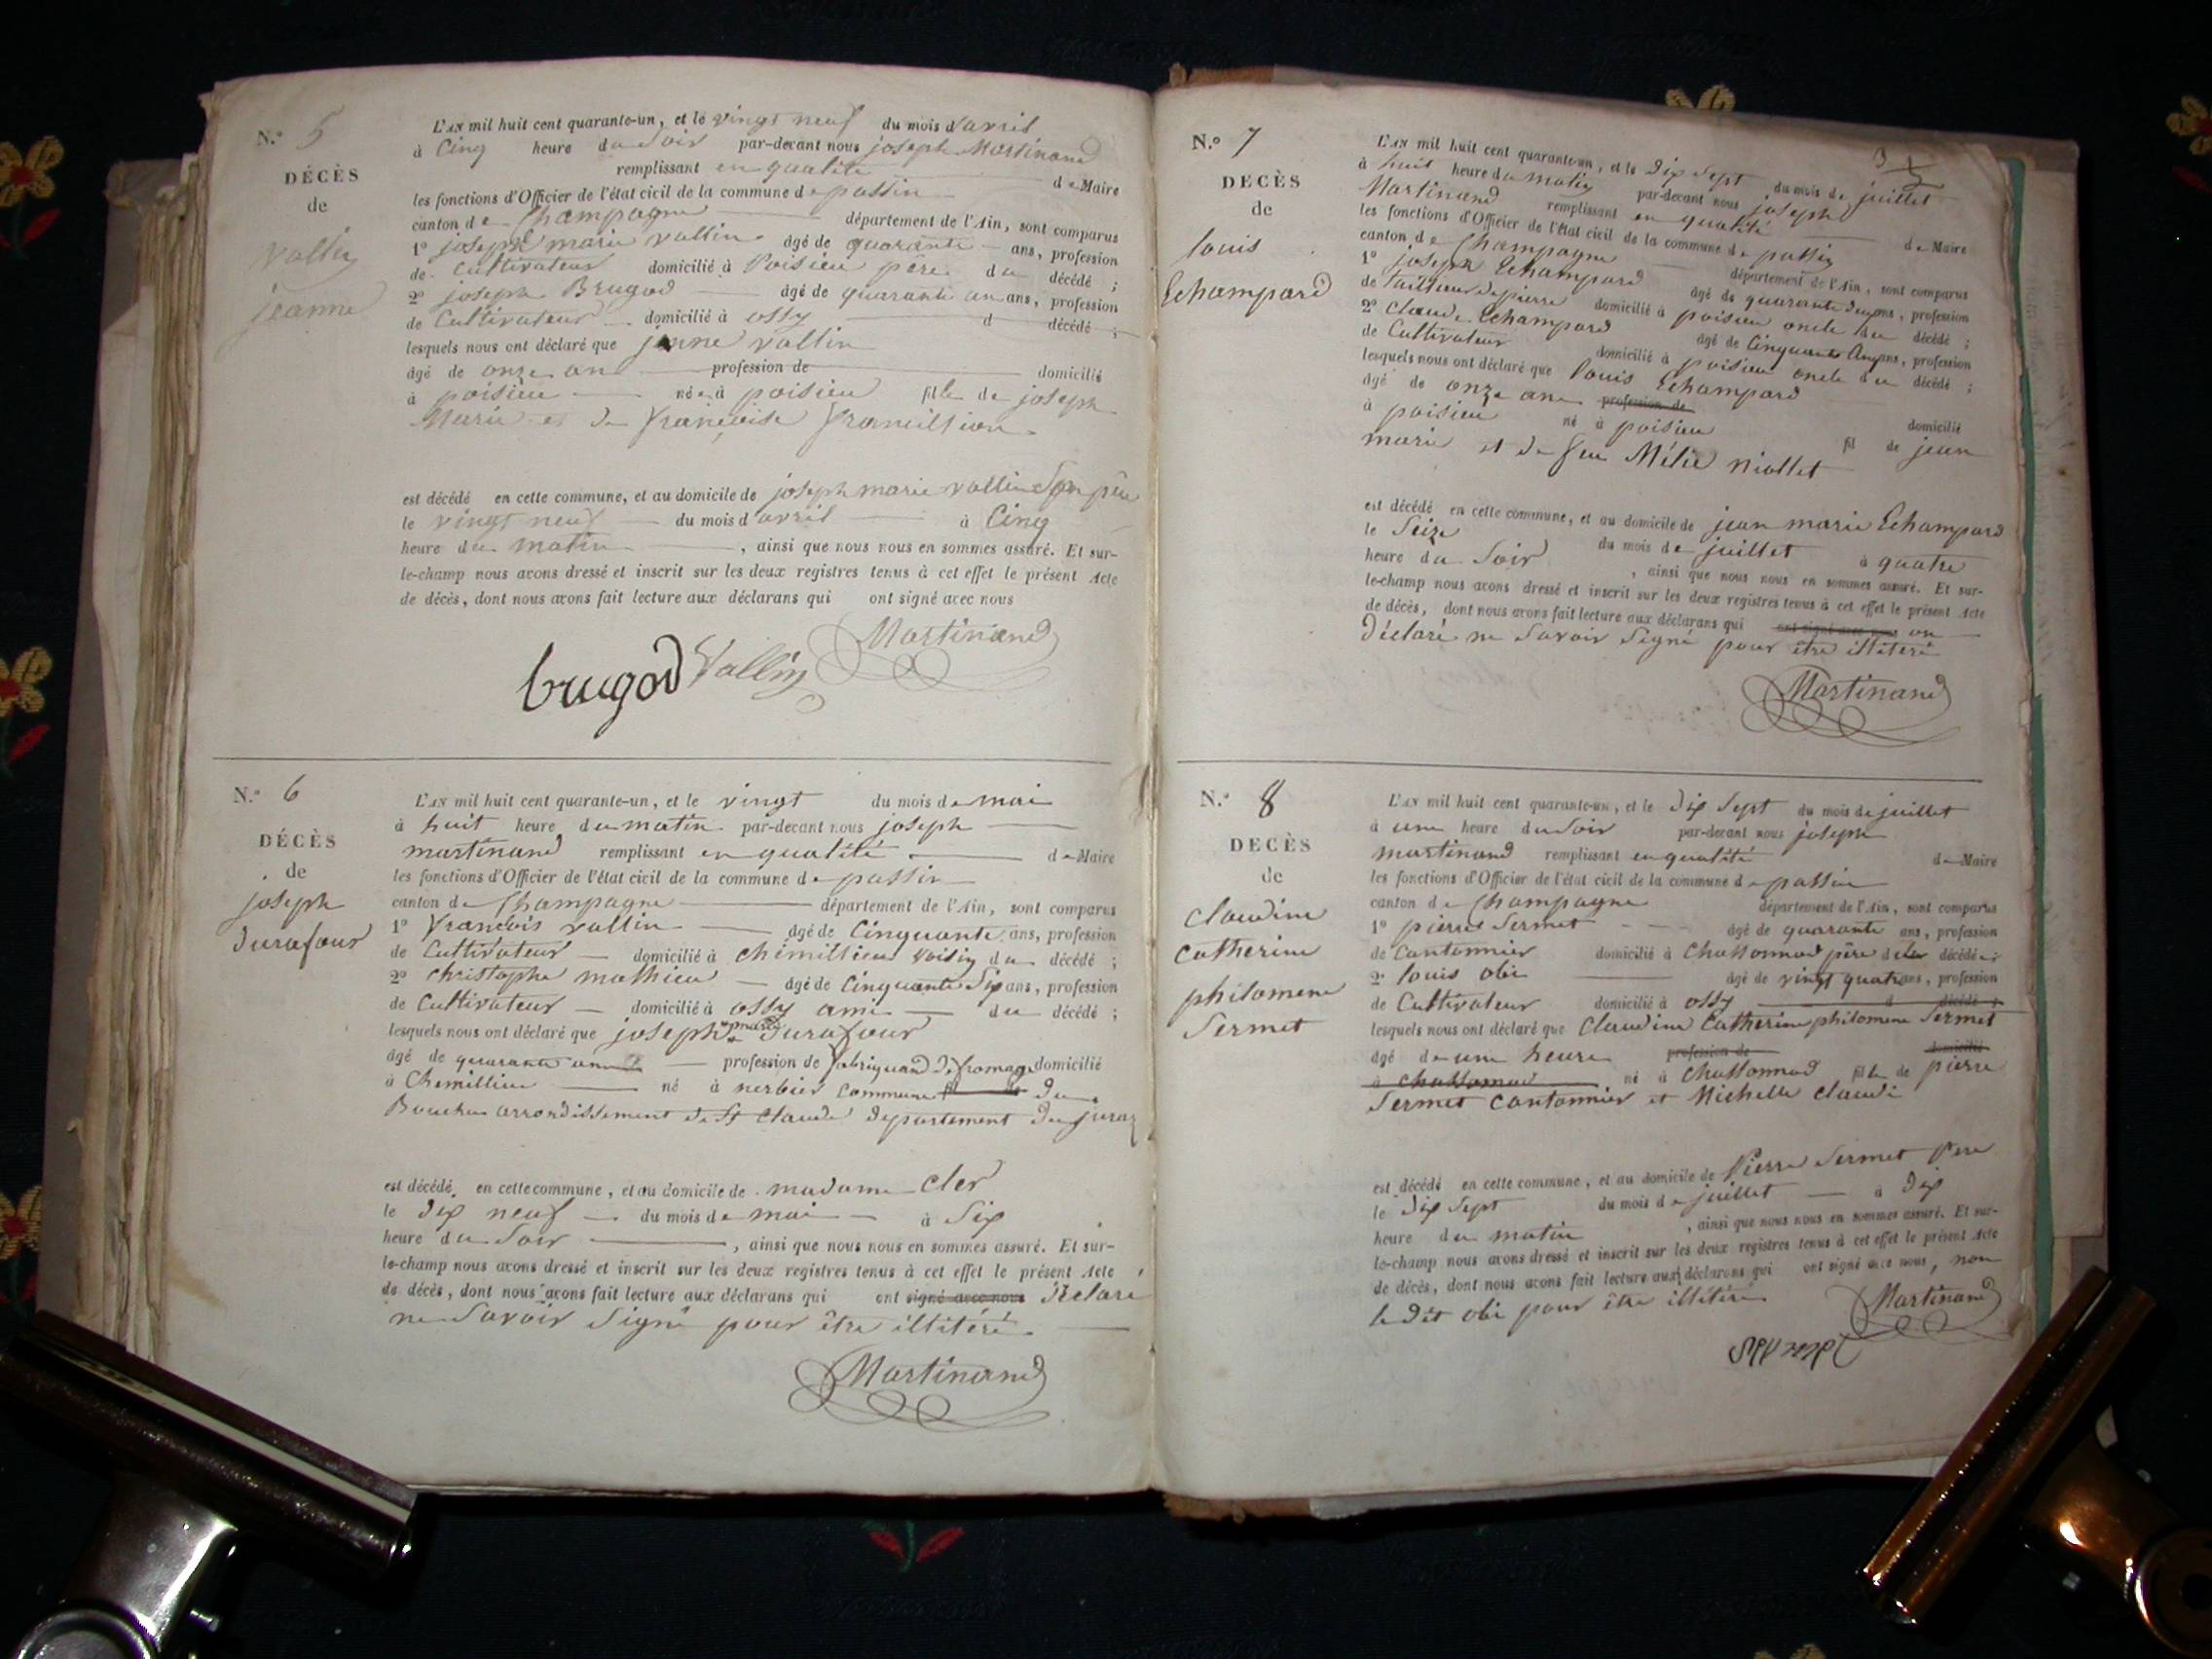 N.° 5
DÉCÈS
de
vallin
jeanne
L'AN mil huit cent quarante-un, et le vingt neuf du mois d'avril
à Cinq heure du Soir par-devant nous joseph Martinand
remplissant en qualité de Maire
les fonctions d'Officier de l'état civil de la commune de passin
canton de Champagne département de l'Ain, sont comparus
1° joseph marie vallin âgé de quarante ans, profession
de Cultivateur domicilié à Poisieu père du décédé ;
2° joseph Brugod âgé de quarante un ans, profession
de Cultivateur domicilié à ossy d décédé ;
lesquels nous ont déclaré que jenne vallin
âgé de onze an profession de domicilié
à poisieu née à poisieu fille de joseph
Marie et de françoise francillion
est décédé en cette commune, et au domicile de joseph marie vallin Son père
le vingt neuf du mois d'avril à Cinq
heure du matin , ainsi que nous nous en sommes assuré. Et sur-
le-champ nous avons dressé et inscrit sur les deux registres tenus à cet effet le présent Acte
de décès, dont nous avons fait lecture aux déclarans qui ont signé avec nous
brugod Vallin Martinand
N.° 6
DÉCÈS
de
joseph
Durafour
L'AN mil huit cent quarante-un, et le vingt du mois de mai
à huit heure du matin par-devant nous joseph
martinand remplissant en qualité de Maire
les fonctions d'Officier de l'état civil de la commune de passin
canton de Champagne département de l'Ain, sont comparus
1° François vallin âgé de Cinquante ans, profession
de Cultivateur domicilié à Chemillieu voisin du décédé ;
2° Christophe mathieu âgé de Cinquante Six ans, profession
de Cultivateur domicilié à ossy ami du décédé ;
lesquels nous ont déclaré que joseph marie Durafour
âgé de quarante un profession de fabriquand de fromage domicilié
à Chemillieu né à nerbier Commune fil de du
Bouchu arrondissement de St Claude departement du jura
est décédé en cette commune, et au domicile de madame Cler
le Dix neuf du mois de mai à Six
heure du Soir , ainsi que nous nous en sommes assuré. Et sur-
le-champ nous avons dressé et inscrit sur les deux registres tenus à cet effet le présent Acte
de décès, dont nous avons fait lecture aux déclarans qui ont signé avec nous déclaré
ne Savoir Signé pour être illitéré
Martinand
N.° 7
DÉCÈS
de
louis
Echampard
L'AN mil huit cent quarante-un, et le Dix Sept du mois de juillet
à huit heure du matin par-devant nous joseph
Martinand remplissant en qualité de Maire
les fonctions d'Officier de l'état civil de la commune de passin
canton de Champagne département de l'Ain, sont comparus
1° joseph Echampard âgé de quarante deux ans, profession
de tailleur de pierre domicilié à poisieu oncle du décédé ;
2° Claude Echampard âgé de Cinquante Cinq ans, profession
de Cultivateur domicilié à poisieu oncle du décédé ;
lesquels nous ont déclaré que louis Echampard
âgé de onze an profession de domicilié
à poisieu né à poisieu fil de jean
marie et de feu Mélie niollet
est décédé en cette commune, et au domicile de jean marie Echampard
le Seize du mois de juillet à quatre
heure du Soir , ainsi que nous nous en sommes assuré. Et sur-
le-champ nous avons dressé et inscrit sur les deux registres tenus à cet effet le présent Acte
de décès, dont nous avons fait lecture aux déclarans qui ont signé avec nous on
Déclaré ne Savoir Signé pour être illitéré
Martinand
N.° 8
DÉCÈS
de
claudine
Catherine
philomene
Sermet
L'AN mil huit cent quarante-un, et le Dix Sept du mois de juillet
à une heure du Soir par-devant nous joseph
martinand remplissant en qualité de Maire
les fonctions d'Officier de l'état civil de la commune de passin
canton de Champagne département de l'Ain, sont comparus
1° pierre Sermet âgé de quarante ans, profession
de Cantonnier domicilié à Chassonnod père de la décédée
2° louis obi âgé de vingt quatre ans, profession
de Cultivateur domicilié à ossy d décédé ;
lesquels nous ont déclaré que Claudine Catherine philomene Sermet
âgé de une heure profession de domicilié
à Chassonnod né à Chassonnod fille de pierre
Sermet Cantonnier et Michelle Claudi
est décédé en cette commune, et au domicile de Pierre Sermet Père
le Dix Sept du mois de juillet à Dix
heure du matin , ainsi que nous nous en sommes assuré. Et sur-
le-champ nous avons dressé et inscrit sur les deux registres tenus à cet effet le présent Acte
de décès, dont nous avons fait lecture aux déclarans qui ont signé avec nous, non
le Dit obi pour être illitéré
Martinand